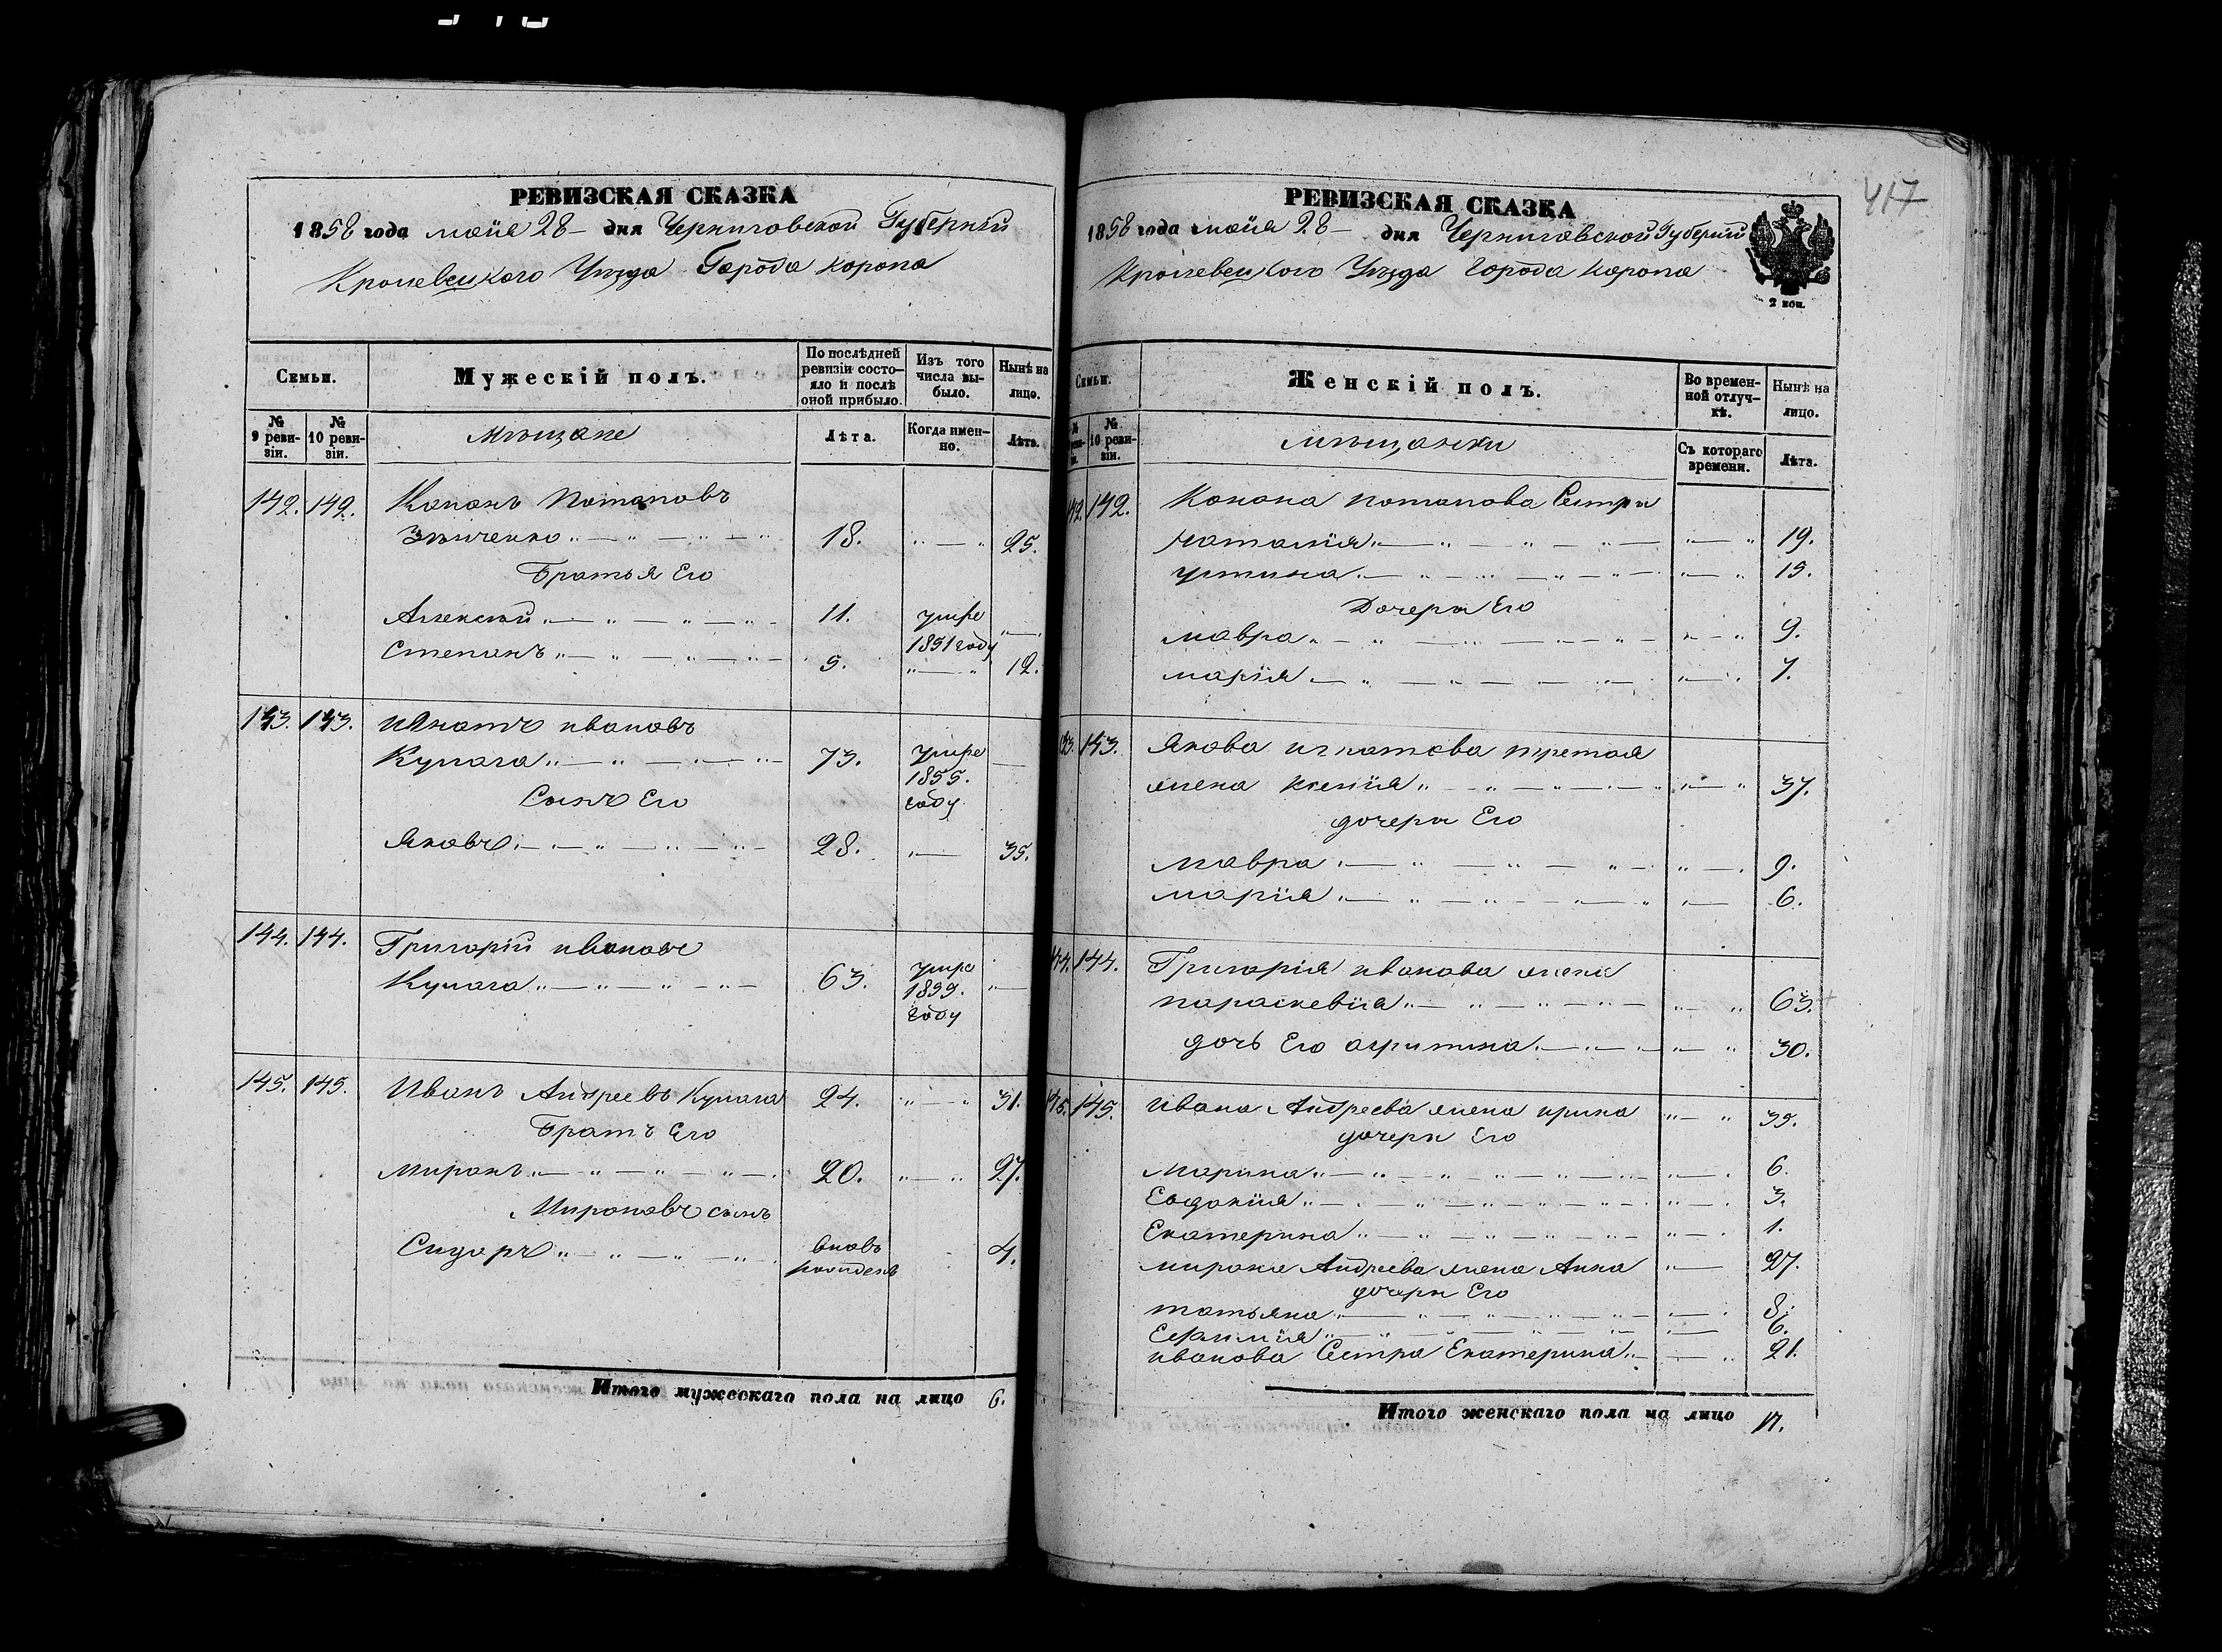 РЕВИЗСКАЯ СКАЗКА
1858 года маія 28 дня Черниговской Губерніи
Кролевецкого Уѣзда Города Коропа
Семьи.
Мужескій полъ.
По послѣдней ревизіи состояло и послѣ оной прибыло.
Изъ того числа выбыло.
Нынѣ на лицо.
№ 9 ревизіи.
№ 10 ревизіи.
Мѣщане
Лѣта.
Когда именно.
Лѣта.
142. 142. Кононъ Потаповъ
Зѣнченко 18. 25.
Братья Его
Алексѣй 11. умре 1851 году
Степанъ 5. 12.
143. 143. Игнатъ ивановъ
Кулага 73. умре 1855. году
Сынъ Его
Яковъ 28. 35.
144. 144. Григорій ивановъ
Кулага 63. умре году
145. 145. Иванъ Андреевъ Кулага 24. 31.
Братъ Его
миронъ 20. 27.
Мироновъ сынъ
Сидоръ вновь рожденъ 4.
Итого мужескаго пола на лицо 6.
417
РЕВИЗСКАЯ СКАЗКА
1858 года маія 28 дня Черниговской Губерніи
Кролевецкого Уѣзда города коропа
2 коп.
Семьи.
Женскій полъ.
Во временной отлучкѣ.
Нынѣ на лицо.
№ 10 ревизіи.
мѣщанки
Съ котораго времени.
Лѣта.
142. 142. Конона потапова Сестры
наталія 19.
устина 15.
Дочери Его
мавра 9.
марія 7.
143. 143. Якова игнатова третая
жена ксенія 37.
дочери Его
мавра 9.
марія 6.
144. 144. Григорія иванова жена
параскевія 63.
дочь Его агрипина 30.
145. 145. ивана Андреева жена ирина 35.
дочери Его
марина 6.
Евдокія 3.
Екатерина 1.
мирона Андреева жена Анна 27.
дочери Его
татьяна 8.
Ефимія 6.
иванова Сестра Екатерина 21.
Итого женскаго пола на лицо 17.